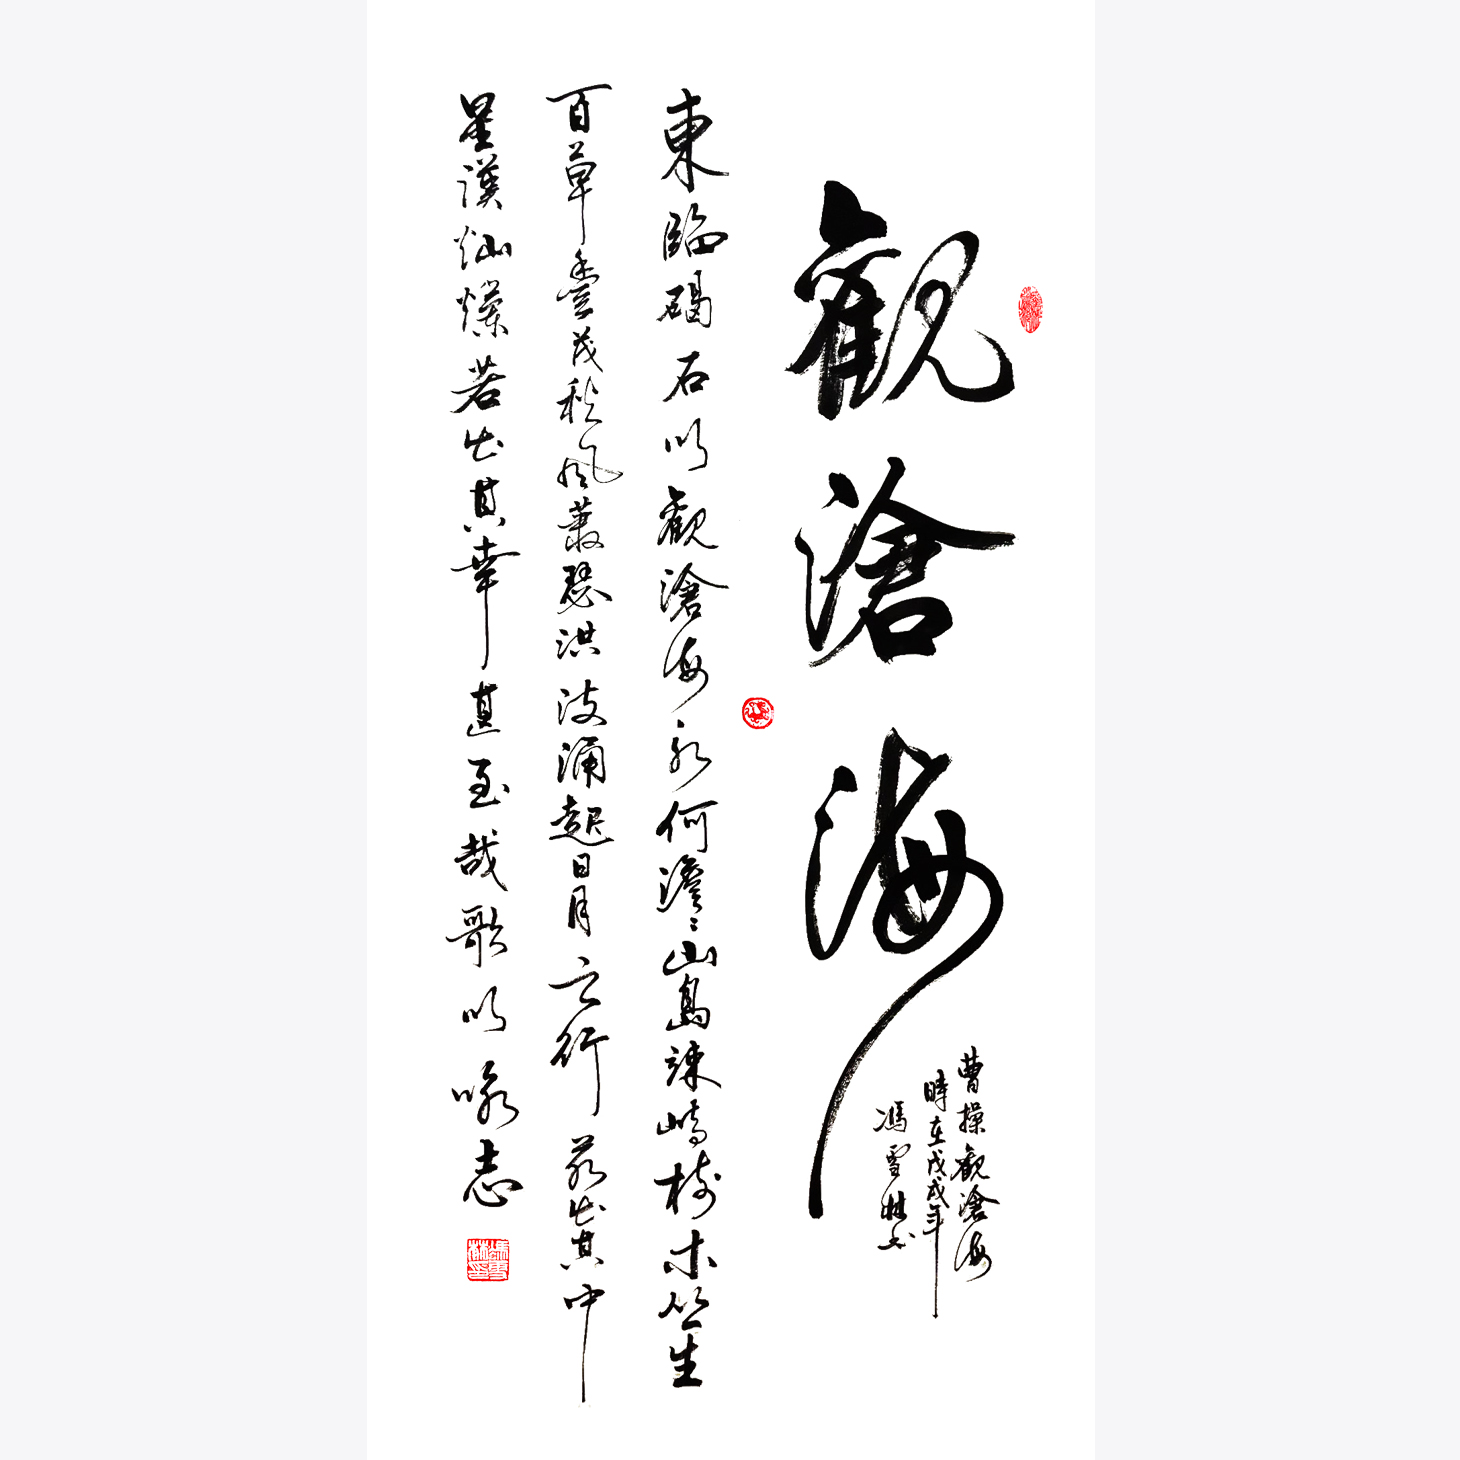 觀滄海
曹操觀滄海
時在戊戌年
馮雪林书
東臨碣石以觀滄海水何澹〻山島竦峙樹木丛生
百草豊茂秋風蕭瑟洪波涌起日月之行若出其中
星漢灿爛若出其裏幸甚至哉歌以咏志